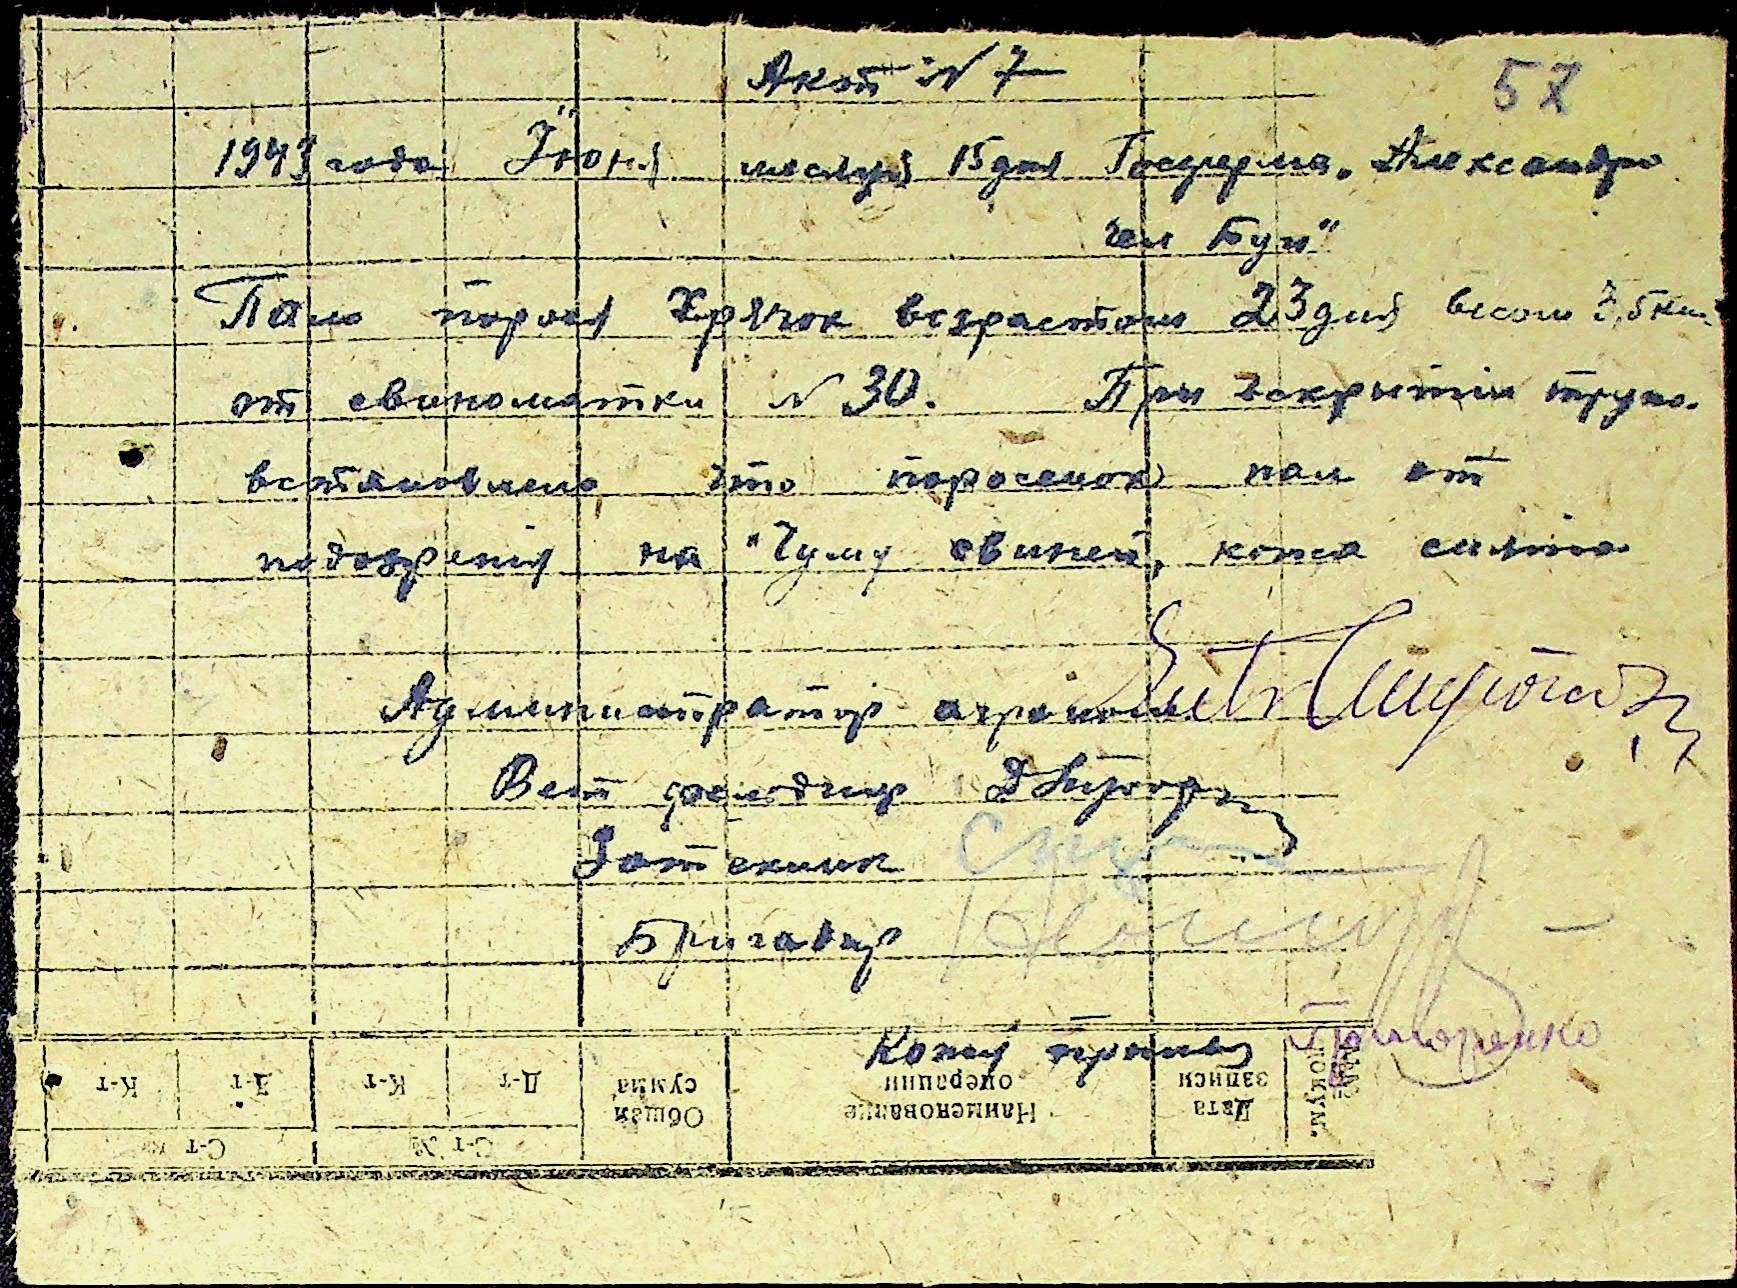 Акт № 7
57
1943 года Июня месяця 15 дня Госферма „Александро
чел Бун"
Пало порося Хрячок возрастом 23 дня весом 3,5 кил.
от свиноматки № 30. При вскрытии трупа
встановлено что поросенок пал от
подозрения на "Чуму свиней, кожа снята
Администратор агроном
Вет фельдшер
Зотехник
Бригадир
Кожу принял Григоренко
К-т Д-т К-т Д-т Общая сумма Наименование операции Дата записи №№ докум.
С-т № С-т №